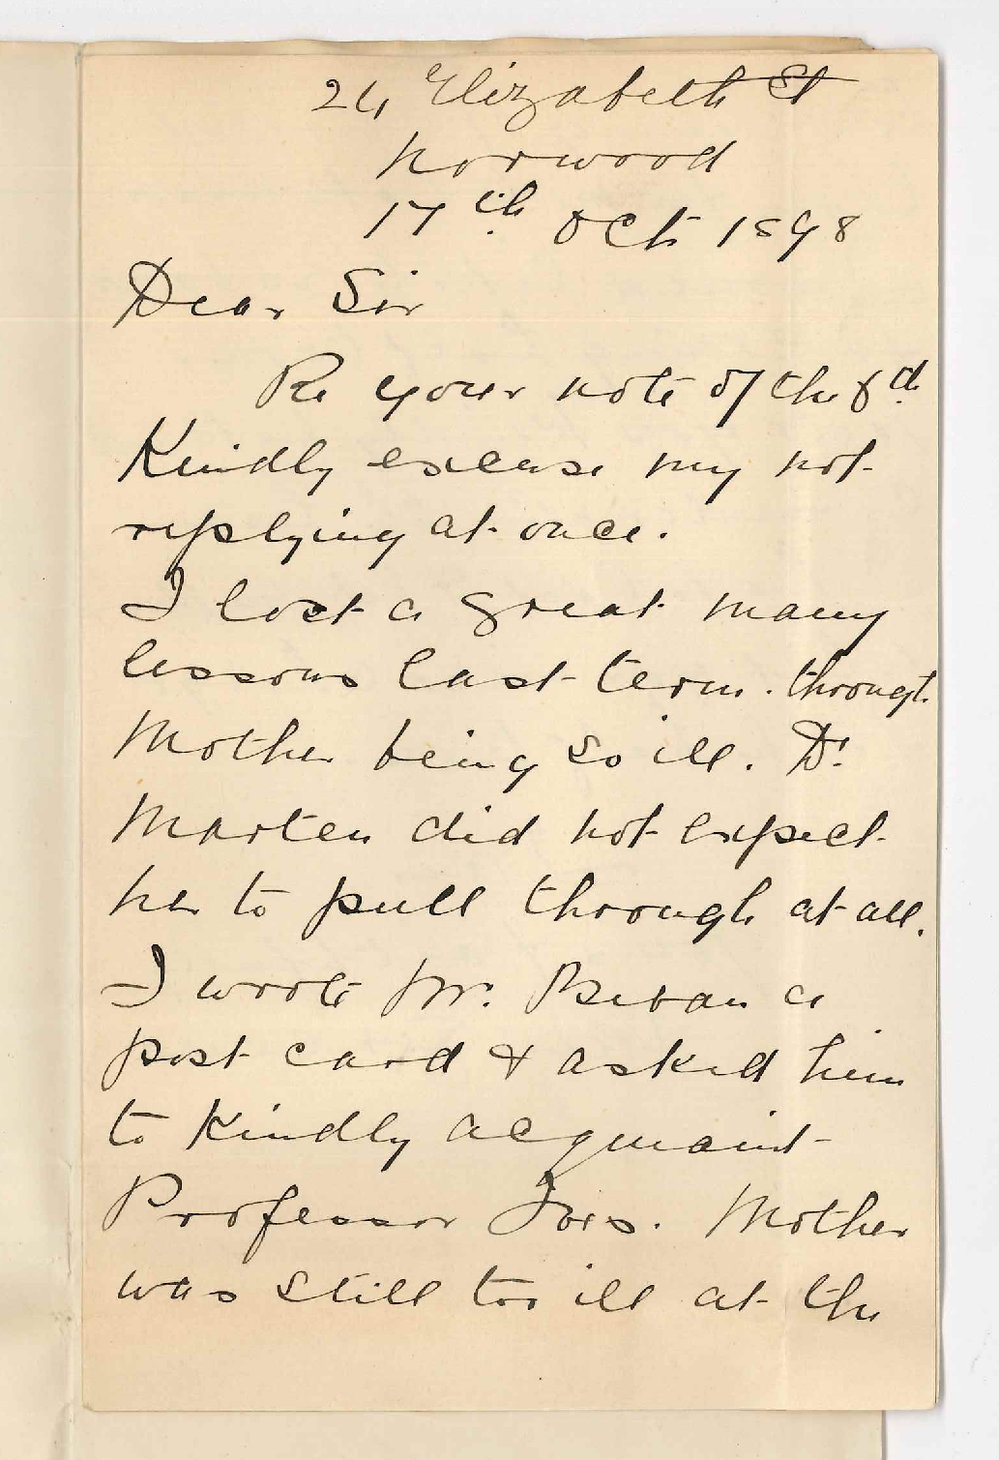 24 Elizabeth St
Norwood
17th Oct 1898
Dear Sir
Re your note of the
Kindly excuse my not
replying at once.
I lost a great many
lessons last term. through
Mother being so ill. Dr.
Marten did not expect
her to pull through at all.
I wrote Mr. Bevan a
post card & asked him
to Kindly acquaint
Professor Ives. Mother
was still too ill at the